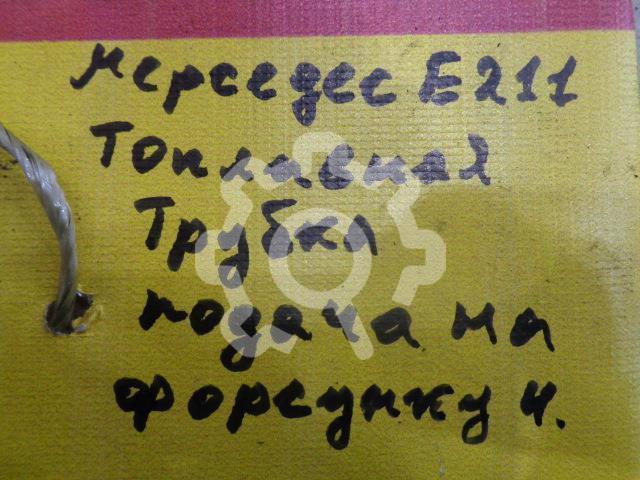 Мерседес Е211
Топливная
Трубка
подача на
форсунку 4.